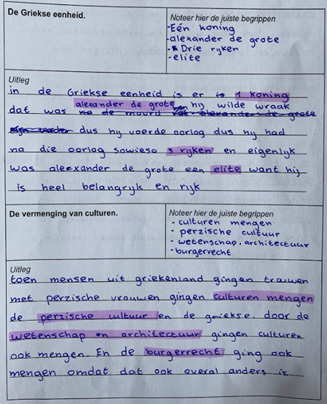 De Griekse eenheid.
Noteer hier de juiste begrippen
-Eén koning
-alexander de grote
- Drie rijken
-elite
Uitleg
in de Griekse eenheid is er 1 koning
dat was alexander de grote hij wilde wraak
dus hij voerde oorlog dus hij had
na die oorlog sowieso 3 rijken en eigenlijk
was alexander de grote een elite want hij
is heel belangrijk en rijk
De vermenging van culturen.
Noteer hier de juiste begrippen
- culturen mengen
- perzische cultuur
- wetenschap, architectuur
- burgerrecht
Uitleg
toen mensen uit griekenland gingen trouwen
met perzische vrouwen gingen culturen mengen
de perzische cultuur en de griekse. door de
wetenschap en architectuur gingen culturen
ook mengen. En de burgerrecht ging ook
mengen omdat dat ook overal anders is